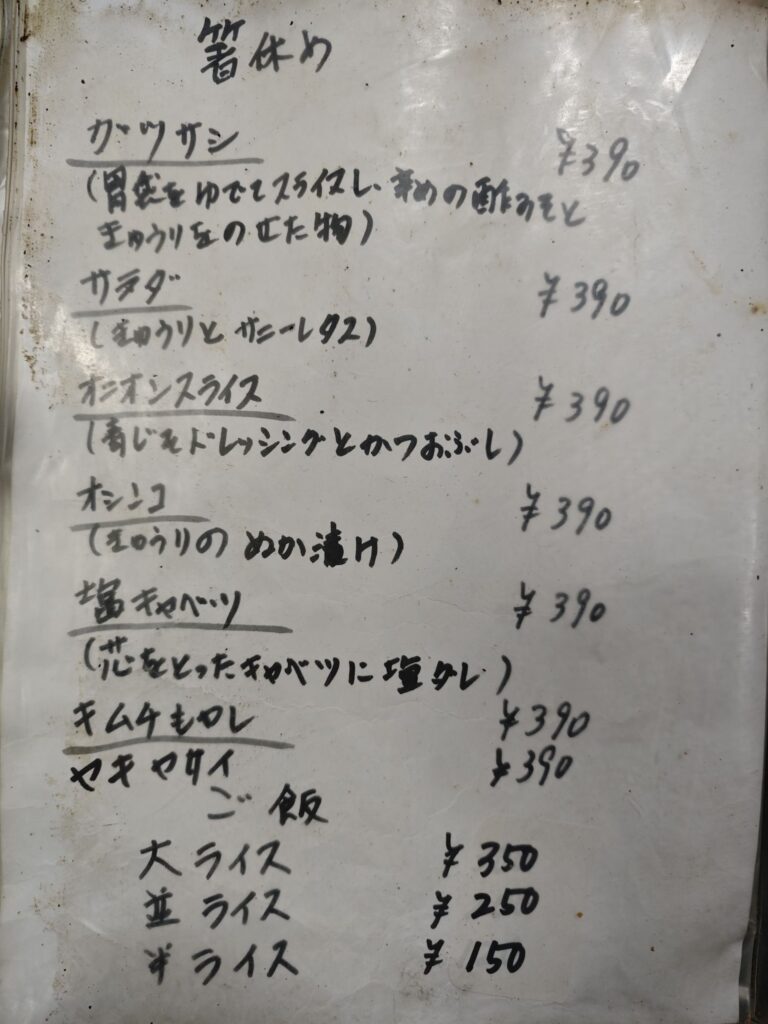 箸休め
ガツサシ ¥390
(胃袋をゆでてスライスし、辛めの酢みそと
きゅうりをのせた物)
サラダ ¥390
(きゅうりとサニーレタス)
オニオンスライス ¥390
(青じそドレッシングとかつおぶし)
オシンコ ¥390
(きゅうりのぬか漬け)
塩キャベツ ¥390
(芯をとったキャベツに塩少し)
キムチもやし ¥390
ヤキヤサイ ¥390
ご飯
大ライス ¥350
並ライス ¥250
半ライス ¥150